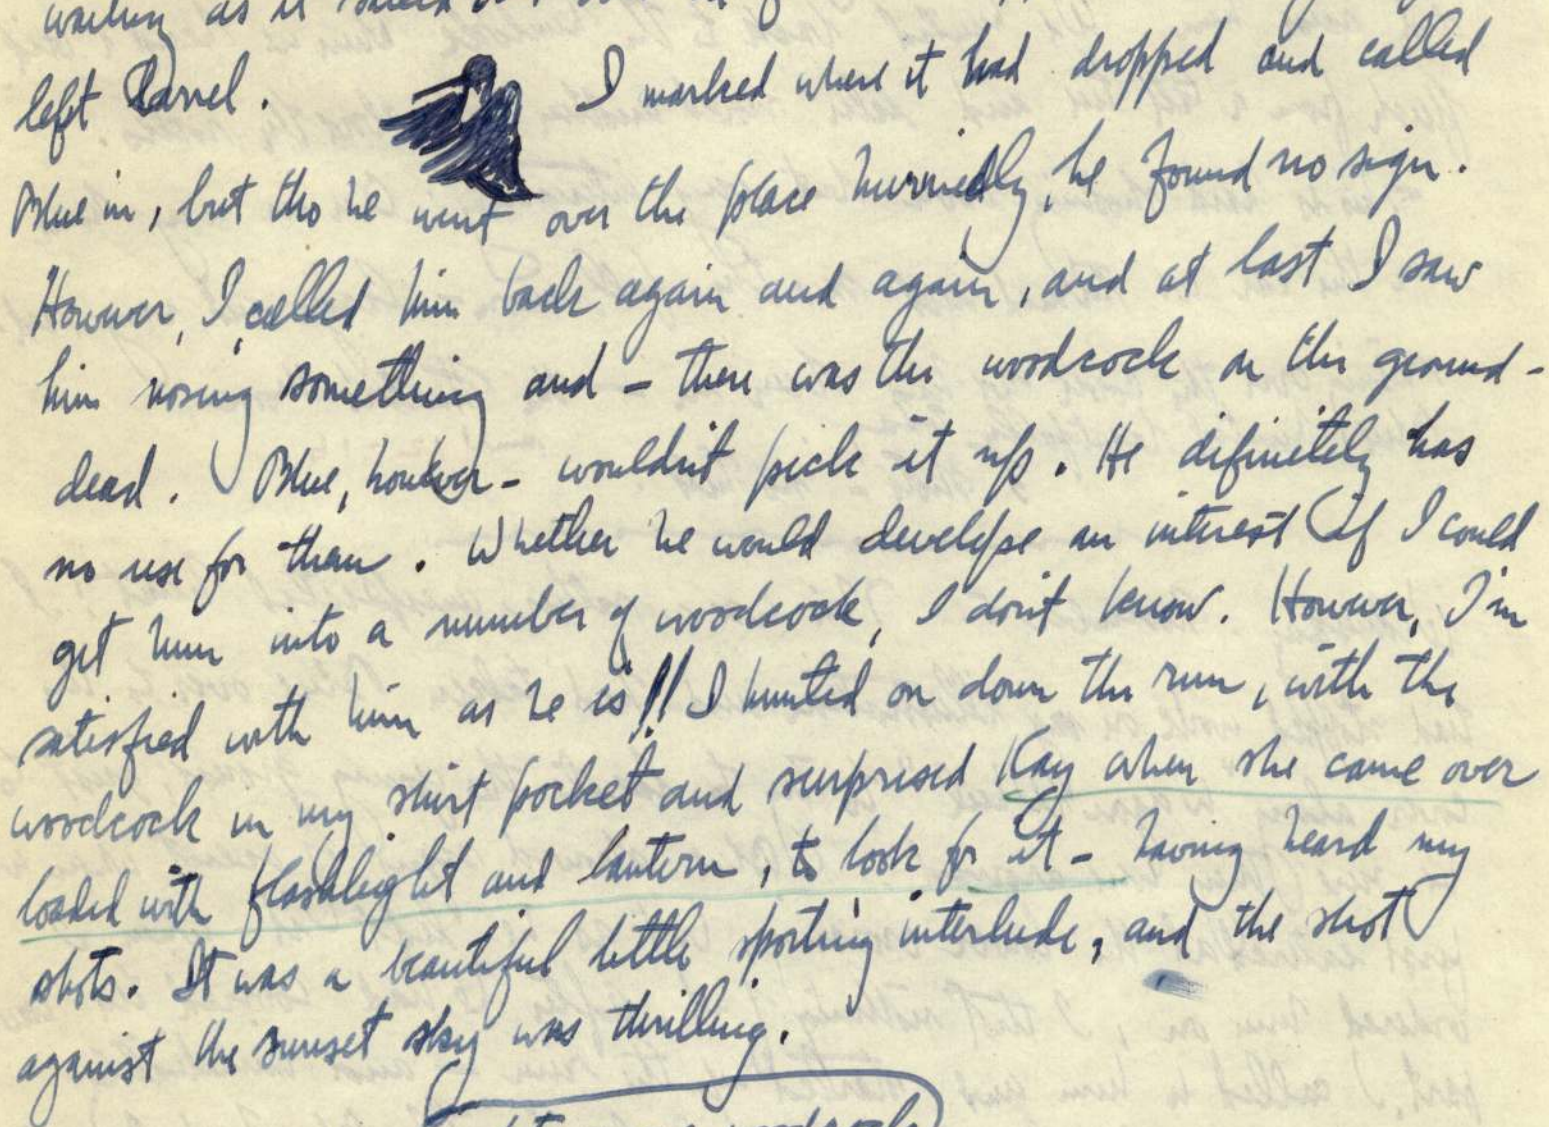 as it
left barrel. I marked where it had dropped and called
Blue in, but tho he went over the place hurriedly, he found no sign.
However, I called him back again and again, and at last I saw
him nosing something and - there was the woodcock on the ground -
dead. Blue, however - wouldn't pick it up. He definitely has
no use for them. Whether he would develope an interest if I could
get him into a number of woodcock, I don't know. However, I'm
satisfied with him as he is!! I hunted on down the run, with the
woodcock in my shirt pocket and surprised Kay when she came over
loaded with flashlight and lantern, to look for it - having heard my
shots. It was a beautiful little sporting interlude, and the shot
against the sunset sky was thrilling.
woodcock